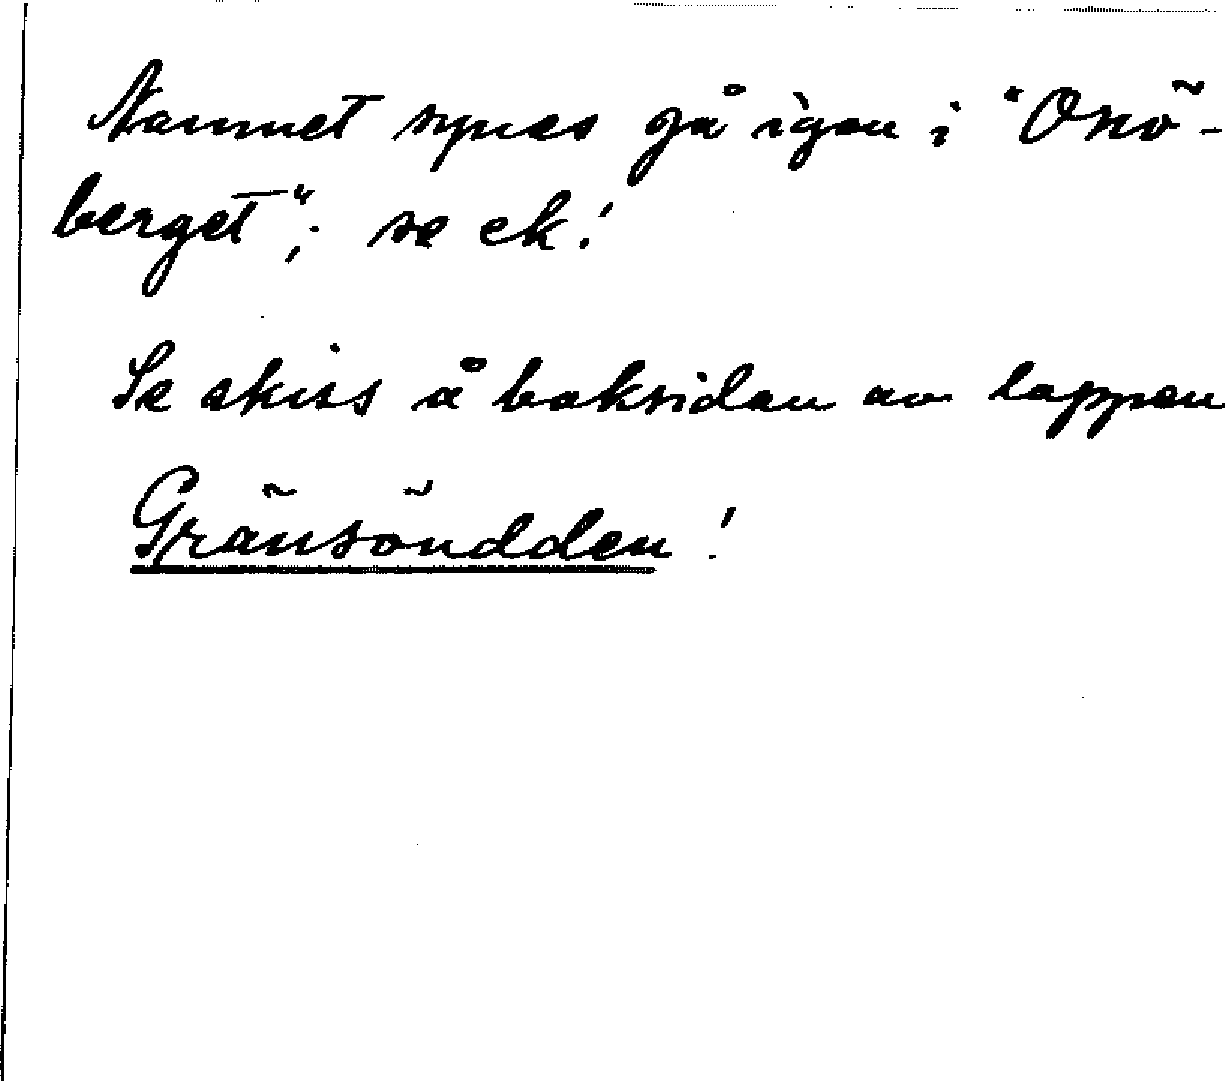 Namnet synes gå igen i "Onö-
berget"; se ek.!
Se skiss å baksidan av lappen
Gränsöudden!